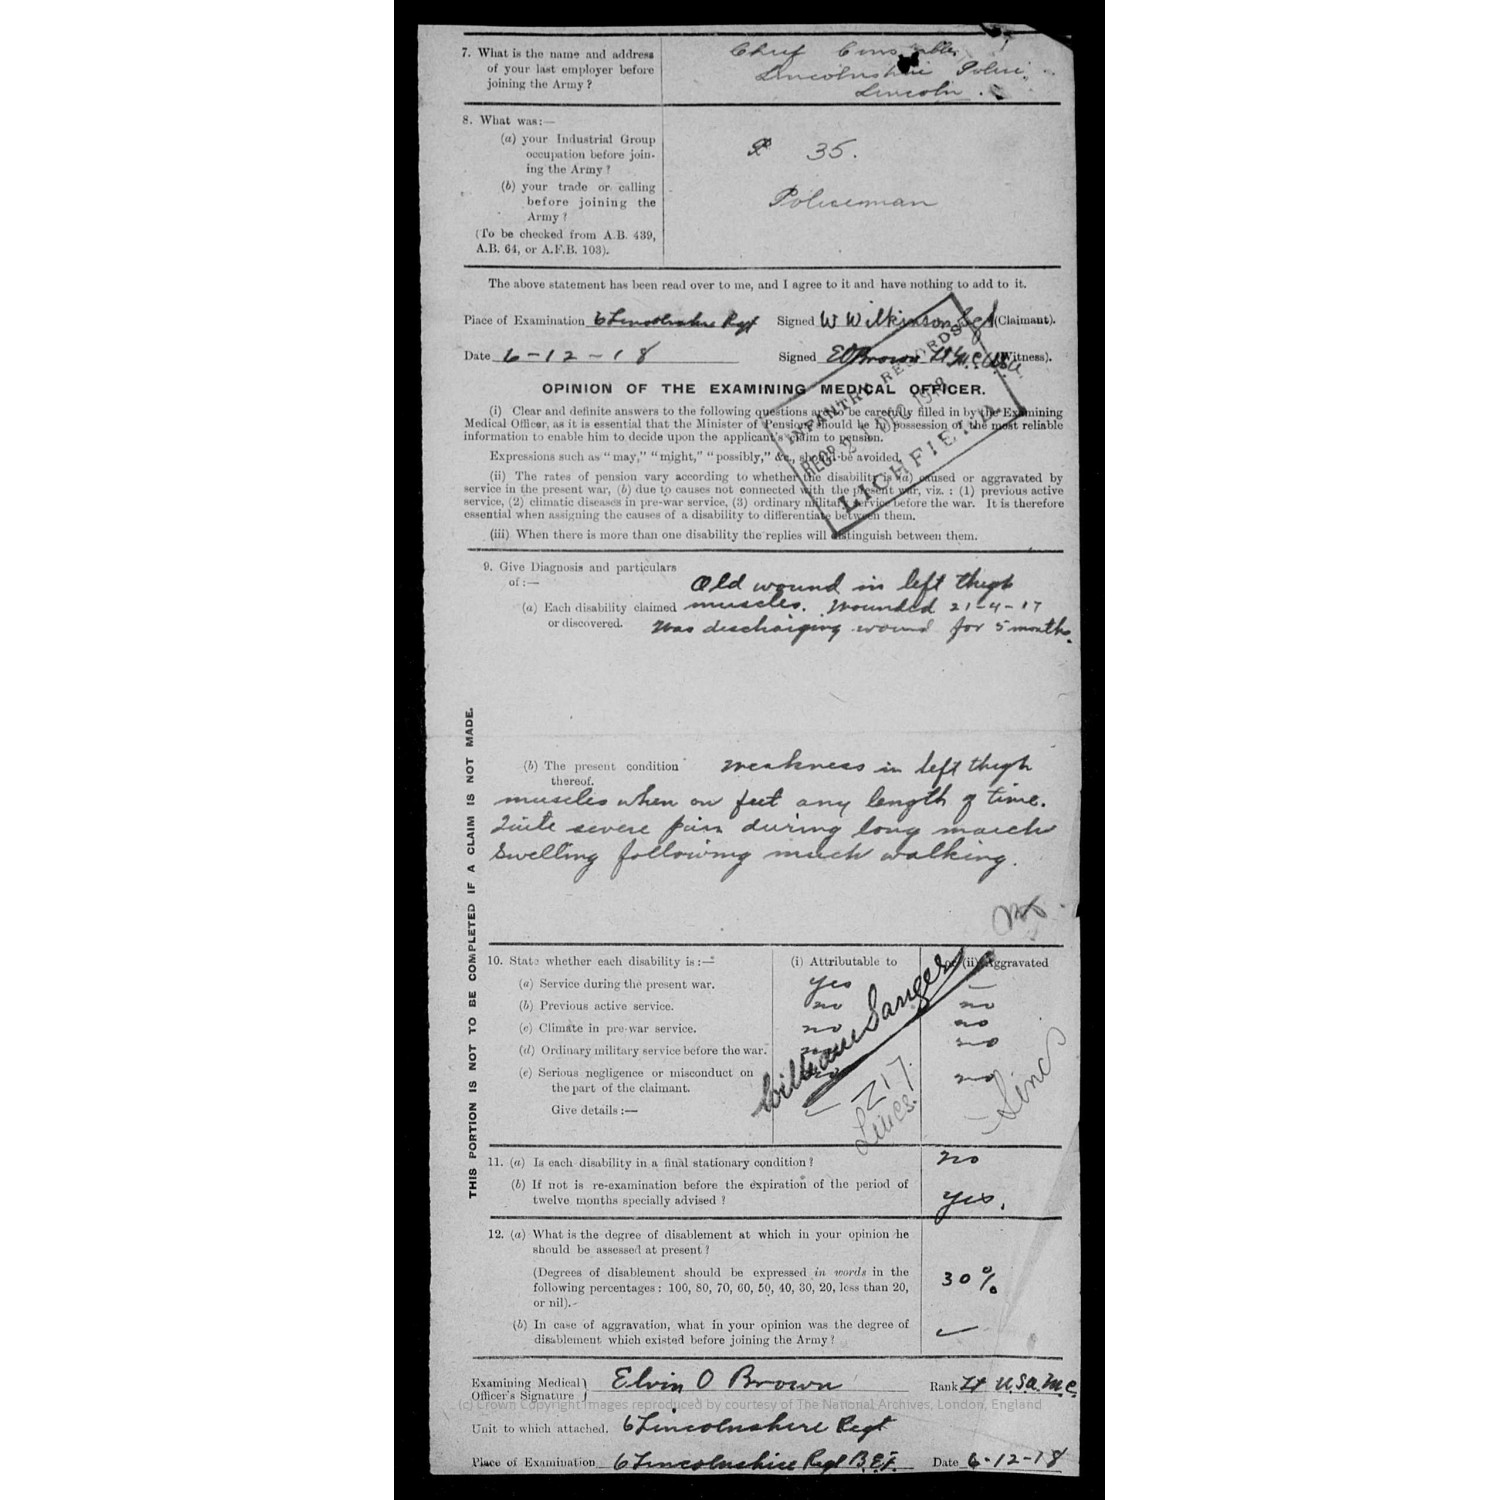 7. What is the name and address
of your last employer before
joining the Army ?
Chief Constable
Lincolnshire Police.
Lincoln.
8. What was:—
(a) your Industrial Group
occupation before join-
ing the Army ?
35.
(b) your trade or calling
before joining the
Army ?
Policeman
(To be checked from A.B. 439,
A.B. 64, or A.F.B. 103).
The above statement has been read over to me, and I agree to it and have nothing to add to it.
Place of Examination 6 Lincolnshire Regt Signed W Wilkinson (Claimant).
Date 6-12-18 Signed E O Brown Lt (Witness).
INFANTRY RECORDS
RECD 21 DEC 1918
LICHFIELD
OPINION OF THE EXAMINING MEDICAL OFFICER.
(i) Clear and definite answers to the following questions are to be carefully filled in by the Examining
Medical Officer, as it is essential that the Minister of Pensions should be in possession of the most reliable
information to enable him to decide upon the applicant's claim to pension.
Expressions such as "may," "might," "possibly," &c., should be avoided.
(ii) The rates of pension vary according to whether the disability is (a) caused or aggravated by
service in the present war, (b) due to causes not connected with the present war, viz. : (1) previous active
service, (2) climatic diseases in pre-war service, (3) ordinary military service before the war. It is therefore
essential when assigning the causes of a disability to differentiate between them.
(iii) When there is more than one disability the replies will distinguish between them.
9. Give Diagnosis and particulars
of :—
(a) Each disability claimed
or discovered.
Old wound in left thigh
muscles. Wounded 21-4-17
Was discharging wound for 5 months.
(b) The present condition
thereof.
Weakness in left thigh
muscles when on feet any length of time.
Quite severe pain during long march
Swelling following much walking.
THIS PORTION IS NOT TO BE COMPLETED IF A CLAIM IS NOT MADE.
10. State whether each disability is :— (i) Attributable to or (ii) Aggravated
(a) Service during the present war. yes —
(b) Previous active service. no no
(c) Climate in pre-war service. no no
(d) Ordinary military service before the war. no no
(e) Serious negligence or misconduct on
the part of the claimant. no no
Give details :—
William Sanger
217.
Lincs.
Lincs
11. (a) Is each disability in a final stationary condition ? no
(b) If not is re-examination before the expiration of the period of
twelve months specially advised ? yes.
12. (a) What is the degree of disablement at which in your opinion he
should be assessed at present ?
(Degrees of disablement should be expressed in words in the
following percentages : 100, 80, 70, 60, 50, 40, 30, 20, less than 20,
or nil).
30%
(b) In case of aggravation, what in your opinion was the degree of
disablement which existed before joining the Army ?
Examining Medical
Officer's Signature Elvin O Brown Rank Lt U.S.A.M.C.
(c) Crown Copyright Images reproduced by courtesy of The National Archives, London, England
Unit to which attached. 6 Lincolnshire Regt
Place of Examination 6 Lincolnshire Regt B.E.F. Date 6-12-18